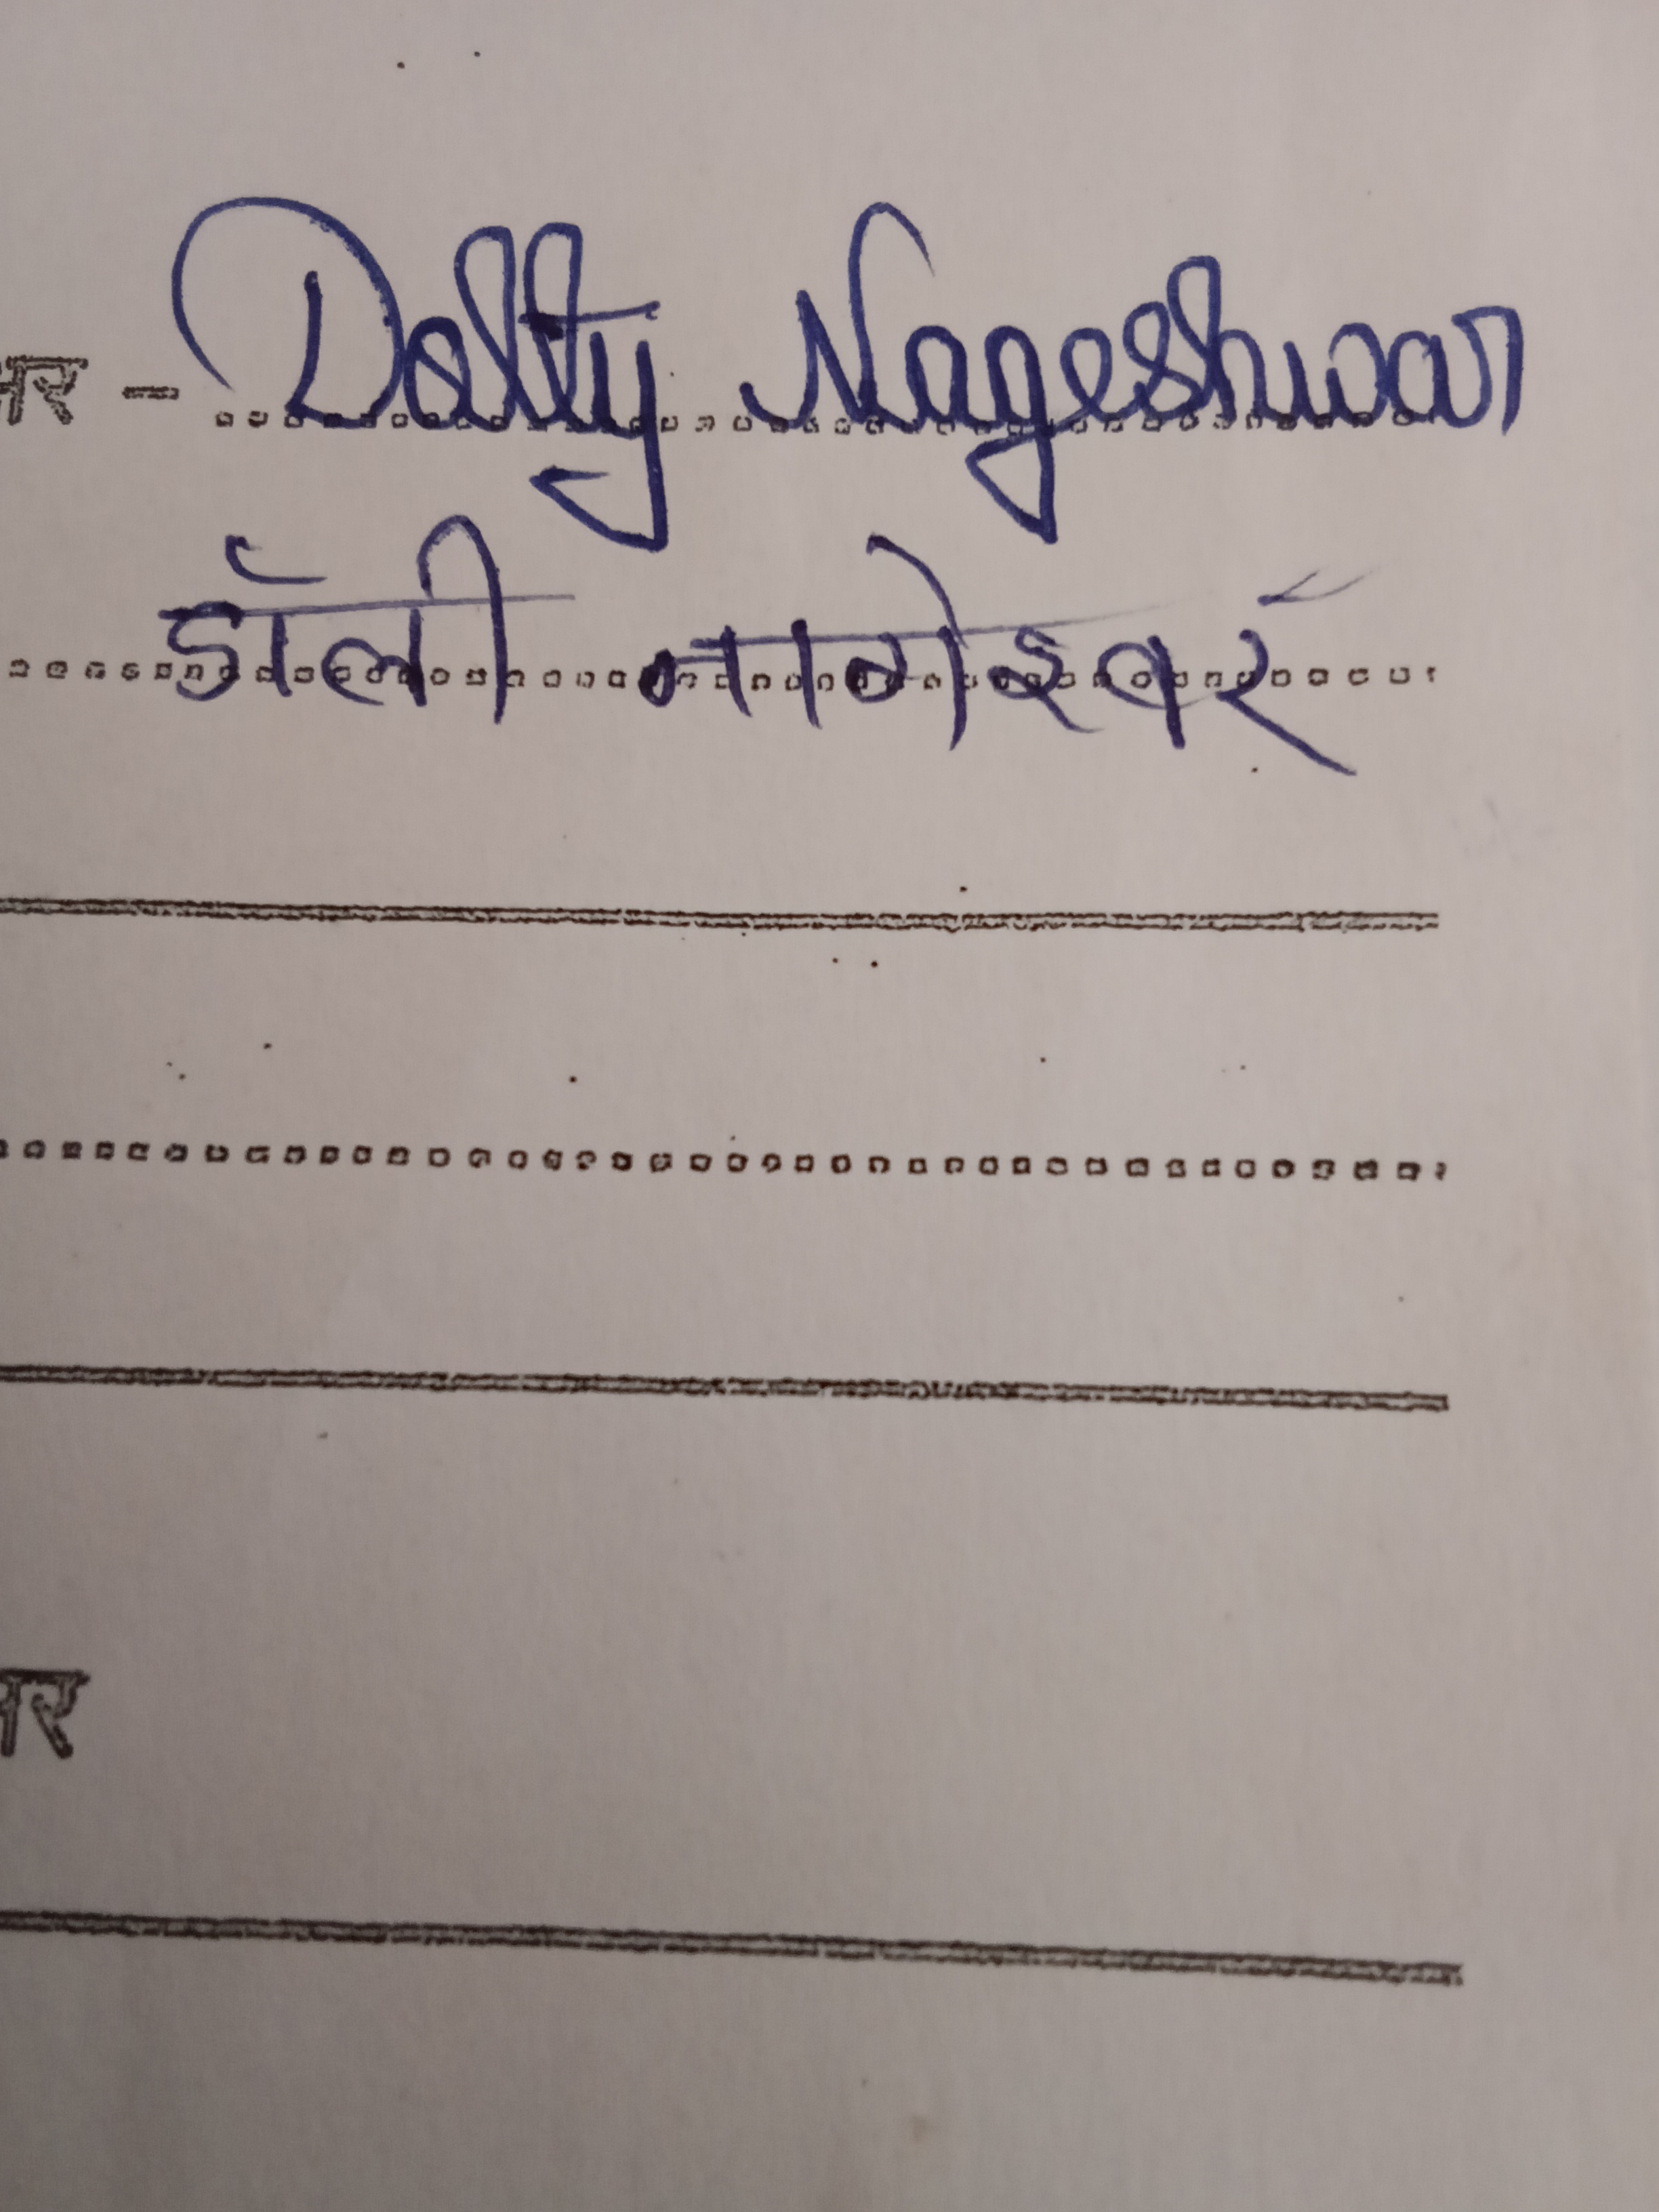 Dolly Nageshwar
डॉली नागेश्वर